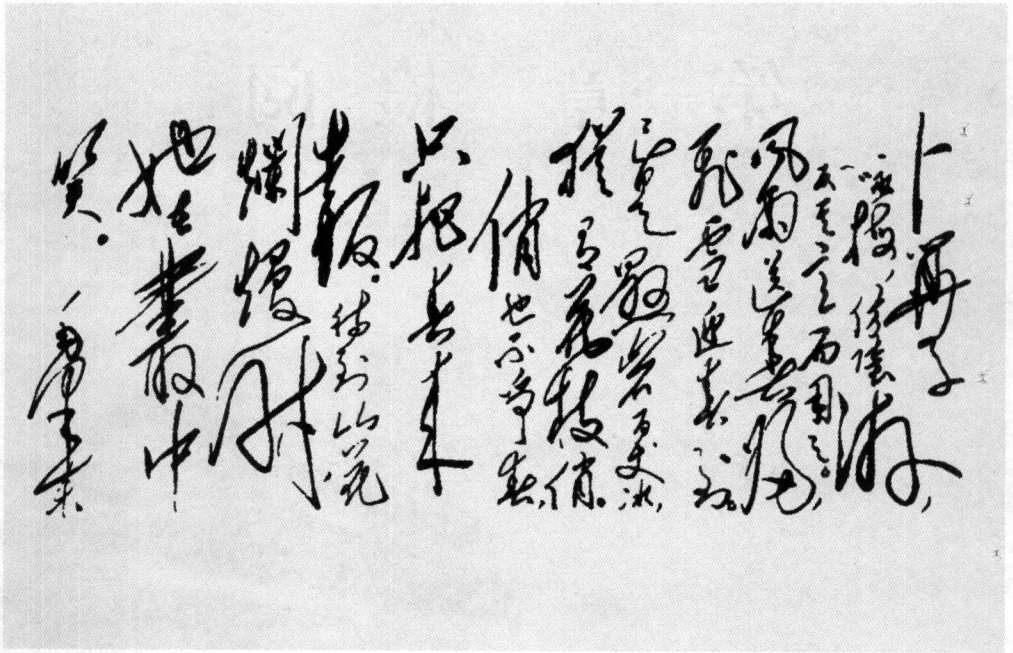 卜算子
詠梅,仿陸游,
反其意而用之。
風雨送春歸,
飛雪迎春到。
已是懸崖百丈冰,
猶有花枝俏。
俏也不爭春,
只把春來
報。待到山花
爛熳時
她在叢中
笑。
毛澤東